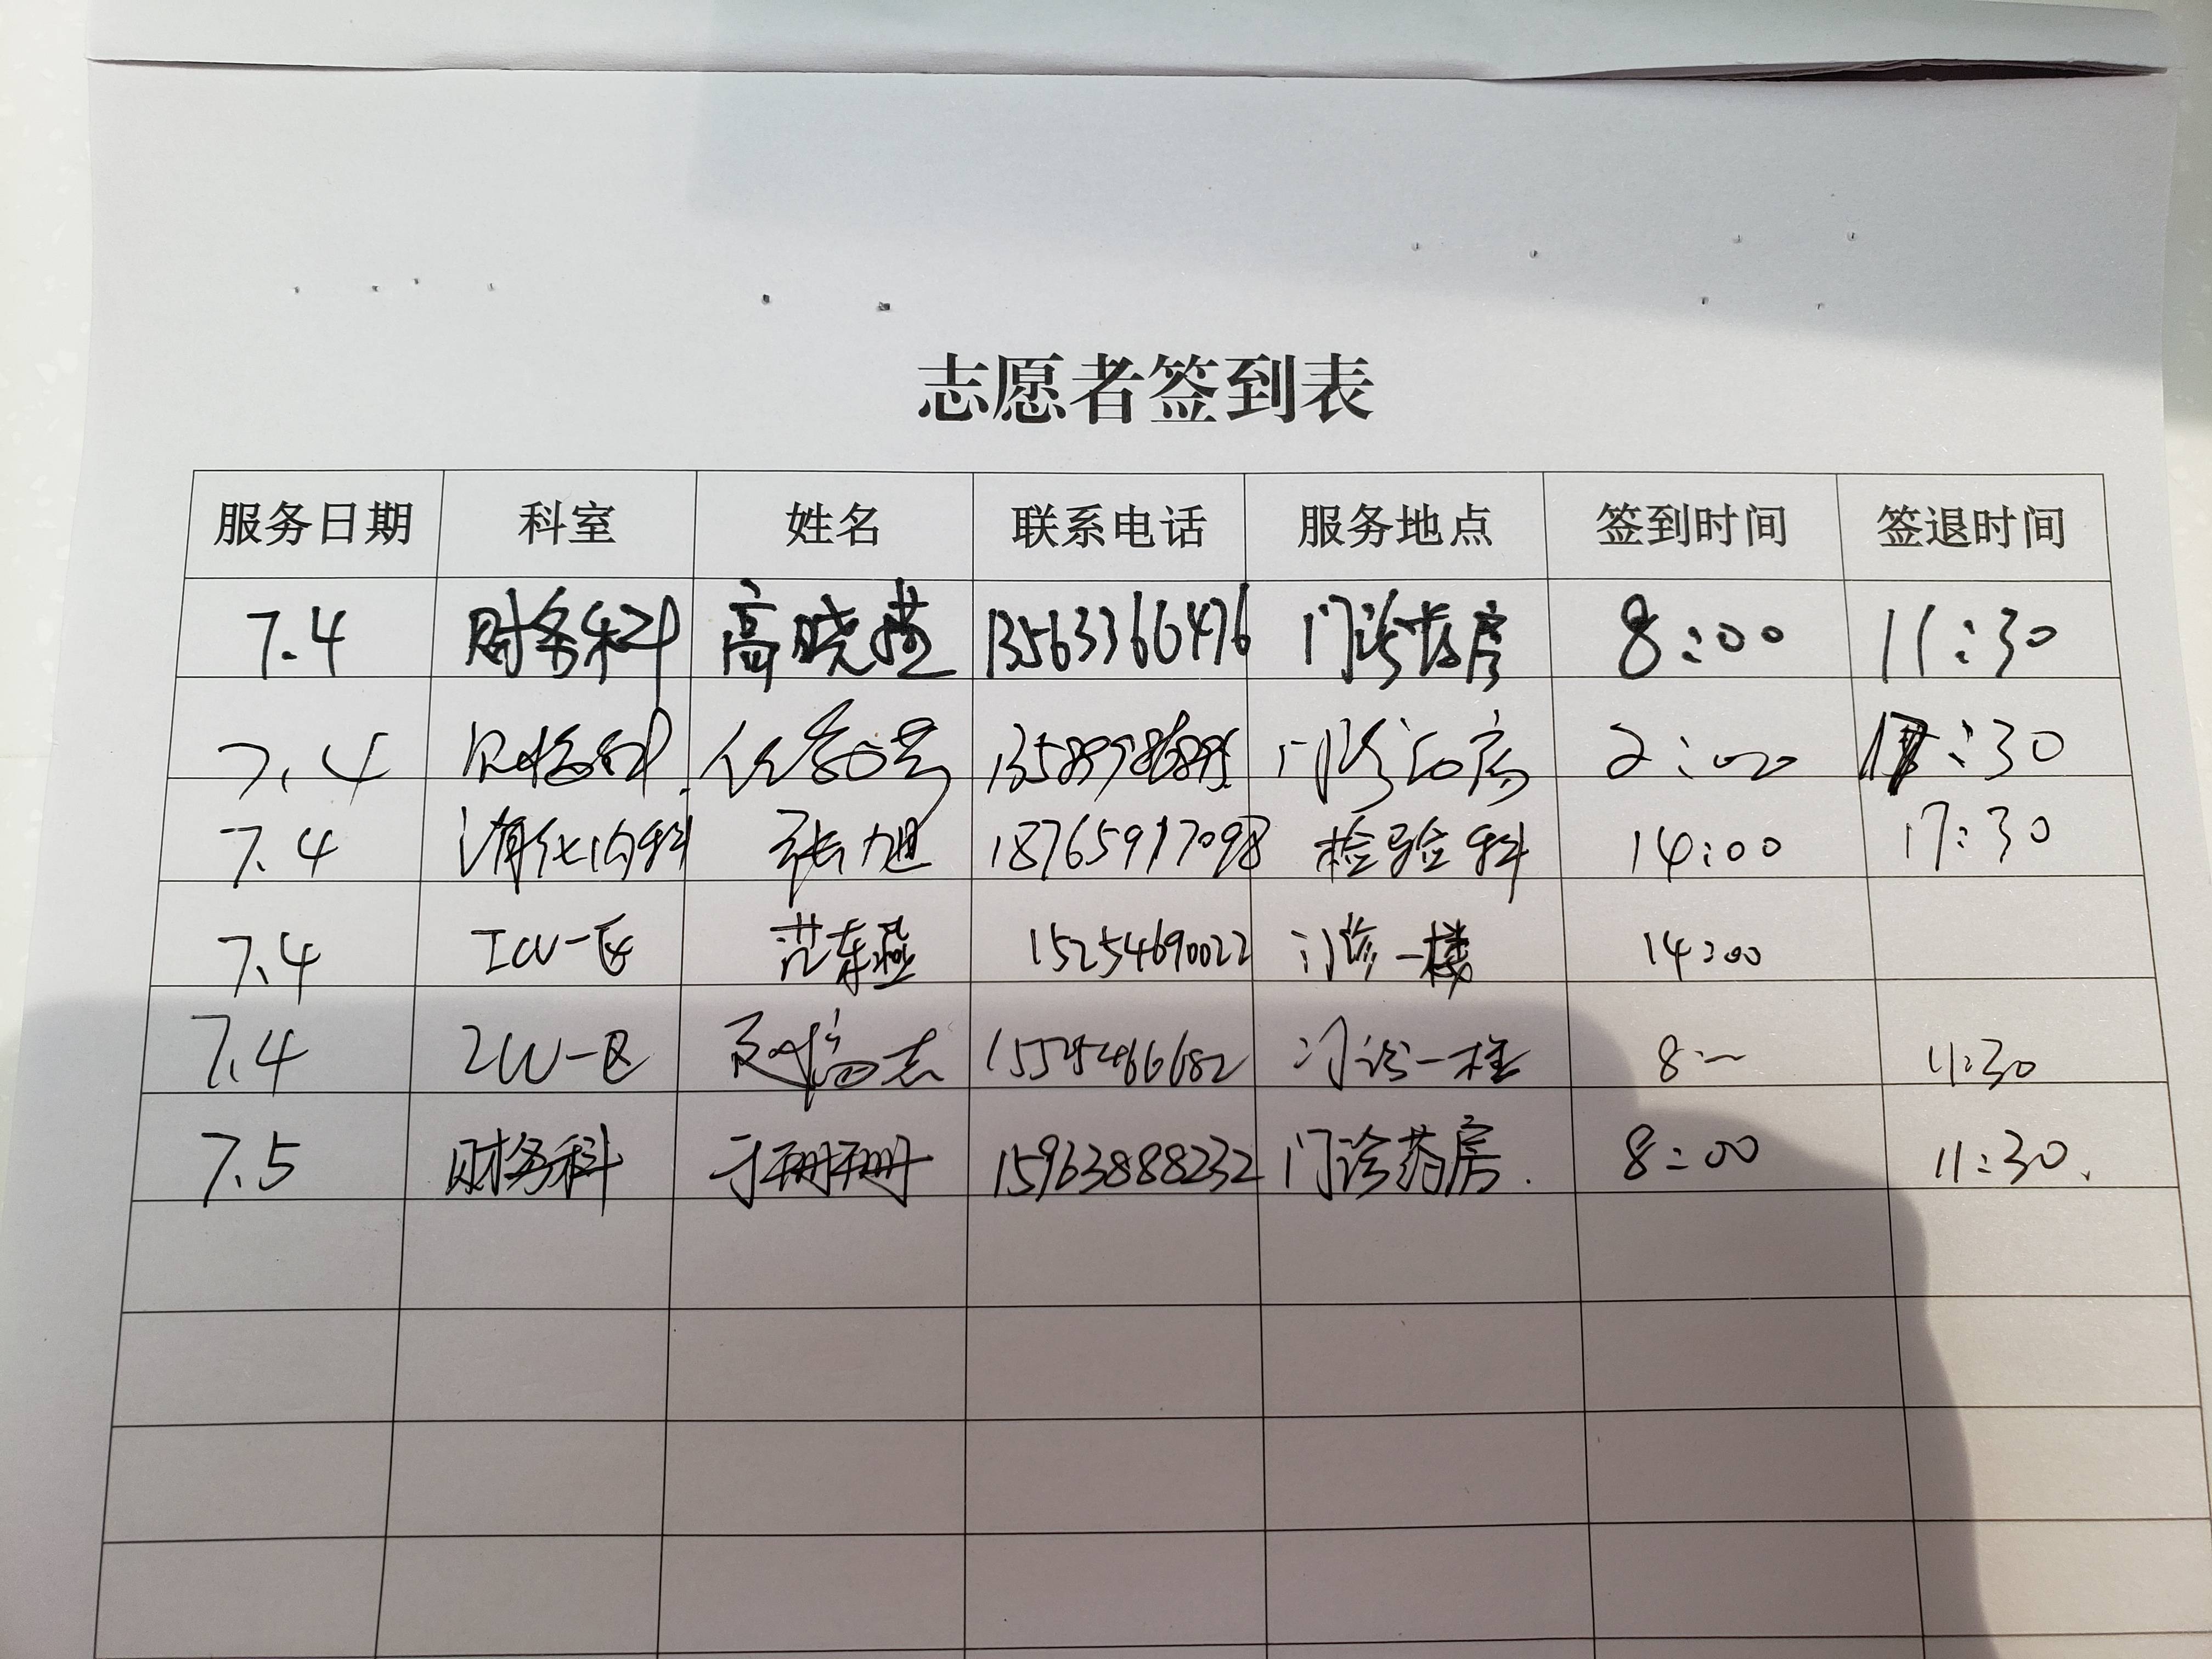 志愿者签到表
服务日期 科室 姓名 联系电话 服务地点 签到时间 签退时间
7.4 财务科 高晓燕 13563366476 门诊药房 8:00 11:30
7.4 财务科 门诊药房 2:00 :30
7.4 消化内科 张旭 18765917098 检验科 14:00 17:30
7.4 ICU一区 范东燕 15254690022 门诊一楼 14:00
7.4 ICU一区 门诊一楼 8:一 11:30
7.5 财务科 于珊珊 15963888232 门诊药房. 8:00 11:30.